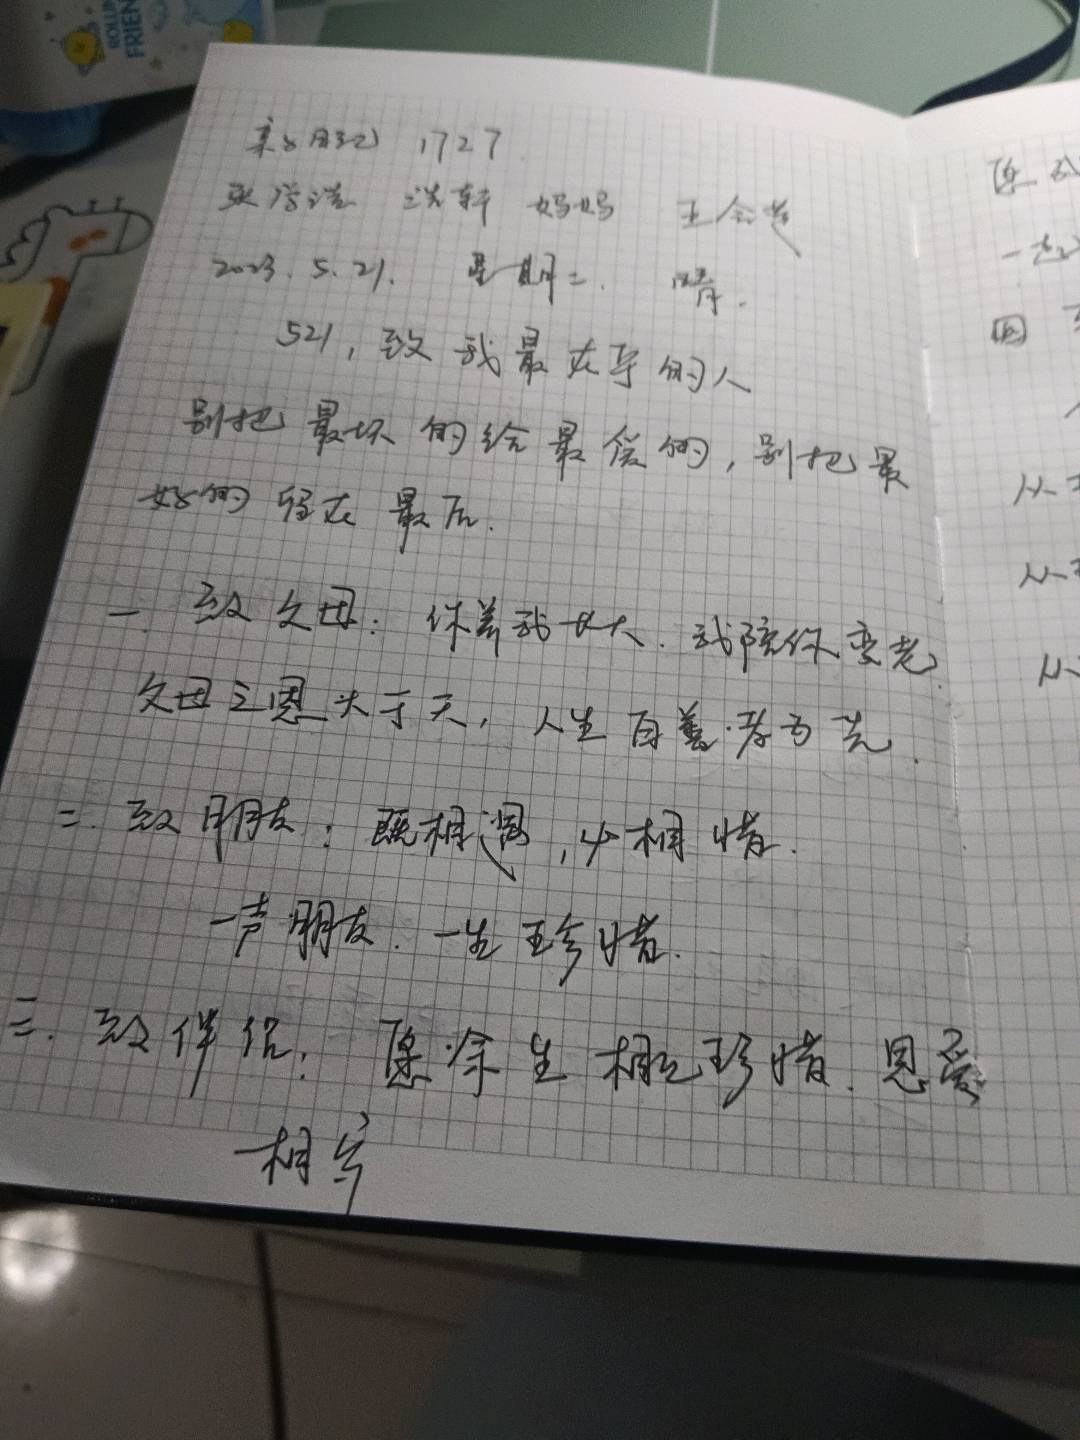 ROLLIN
FRIEN
亲子日记 1727
妈妈 王
2023.5.21. 星期二. 晴.
521,致我最在乎的人
别把最坏的给最爱的,别把最
好的留在最后.
一. 致父母: 你养我长大. 我陪你变老.
父母之恩大于天, 人生百善孝为先.
二. 致朋友: 既相遇, 必相惜.
一声朋友. 一生珍惜.
三. 致伴侣: 愿余生相互珍惜. 恩爱
相守
愿
一起
圆
从
从
从